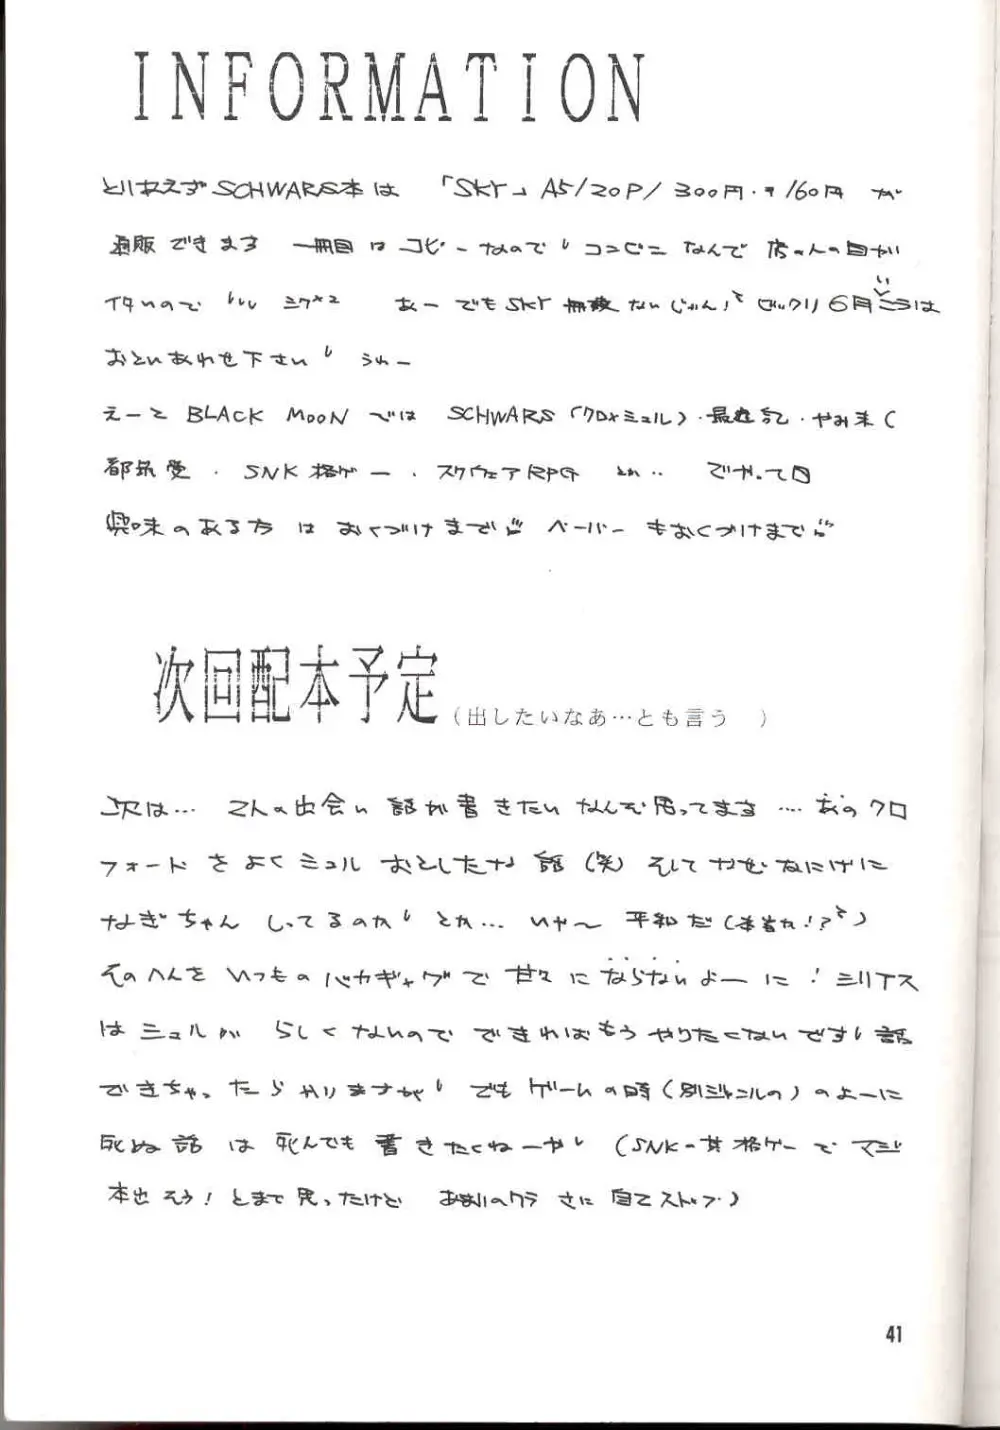 INFORMATION
とりあえずSCHWARS本は 「SKY」A5/20P/300円・〒160円 が
通販できます 一冊目はコピーなので コンビニなんで 店の人の目が
イタいので でもSKY 無敵ないじゃん! ビックリ 6月 は
おといあわせ下さい うわー
えーと BLACK MOONでは SCHWARS(クロ×ミュル)・最遊記・やみ末(
都筑受・SNK格ゲー・スクウェアRPG とか・・
興味のある方 は おくづけまで ペーパー もおくづけまで
次回配本予定(出したいなあ…とも言う )
次は… 2人の出会い 話が書きたい なんて思ってます …. あのクロ
フォード をよくミュル おとしたな 話(笑) そして なぜ なにげに
なぎちゃん しってるのか とか… いや〜 平和だ(本当か!?)
そのへんを いつもの バカギャグで 甘々に ならないよーに! ミリアス
は ミュルが らしくないので できればもう やりたくないです 話
できちゃったら やりますが でも ゲームの時(別ジャンルの)のよーに
死ぬ話 は 死んでも 書きたくねーや (SNKの某格ゲーで マジ
本出そう! とまで思ったけど あまりのクラさに 自己ストップ)
41